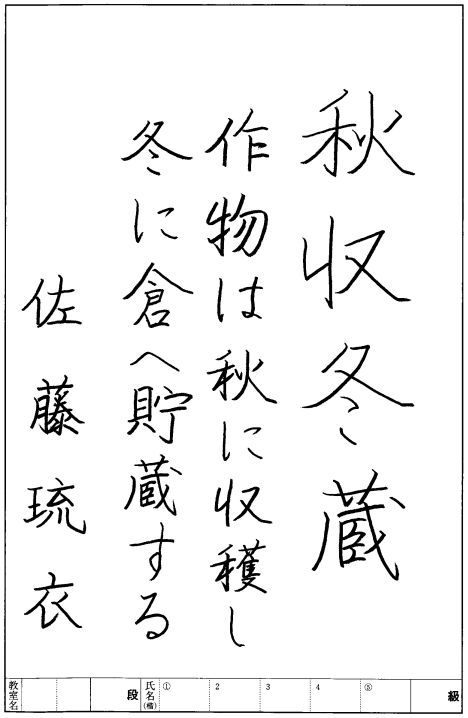 秋収冬蔵
作物は秋に収穫し
冬に倉へ貯蔵する
佐藤琉衣
教室名 段 氏名(楷) ① 2 3 4 ⑤ 級